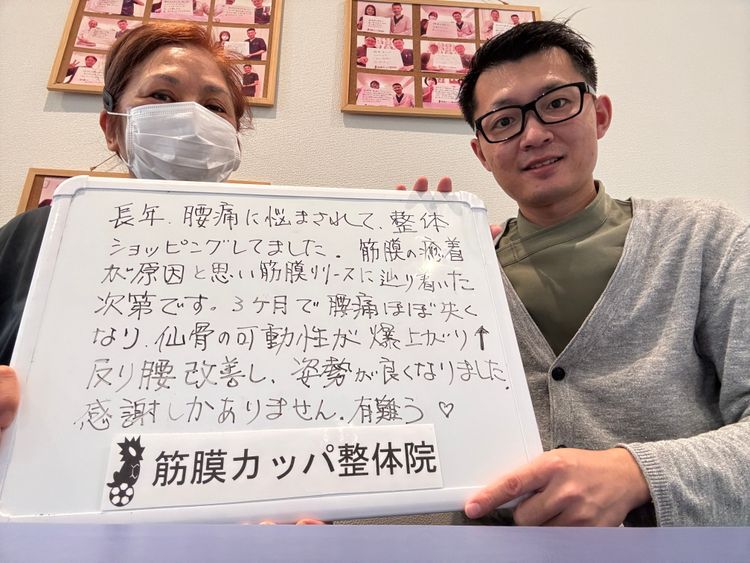 長年、腰痛に悩まされて、整体
ショッピングしてました。筋膜の癒着
が原因と思い筋膜リリースに辿り着いた
次第です。3ヶ月で腰痛ほぼ失く
なり、仙骨の可動性が爆上がり↑
反り腰改善し、姿勢が良くなりました。
感謝しかありません。有難う♡
筋膜カッパ整体院